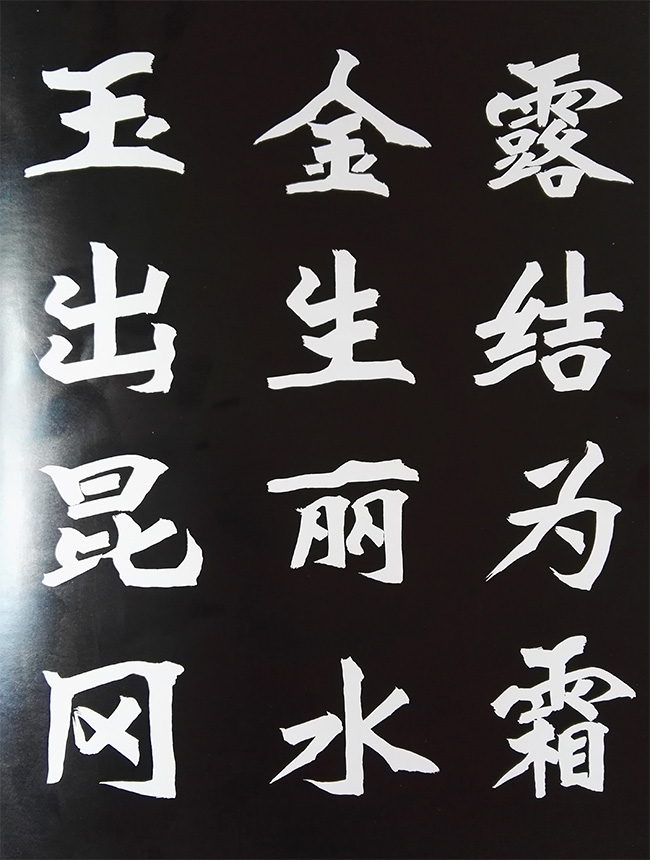 露结为霜
金生丽水
玉出昆冈